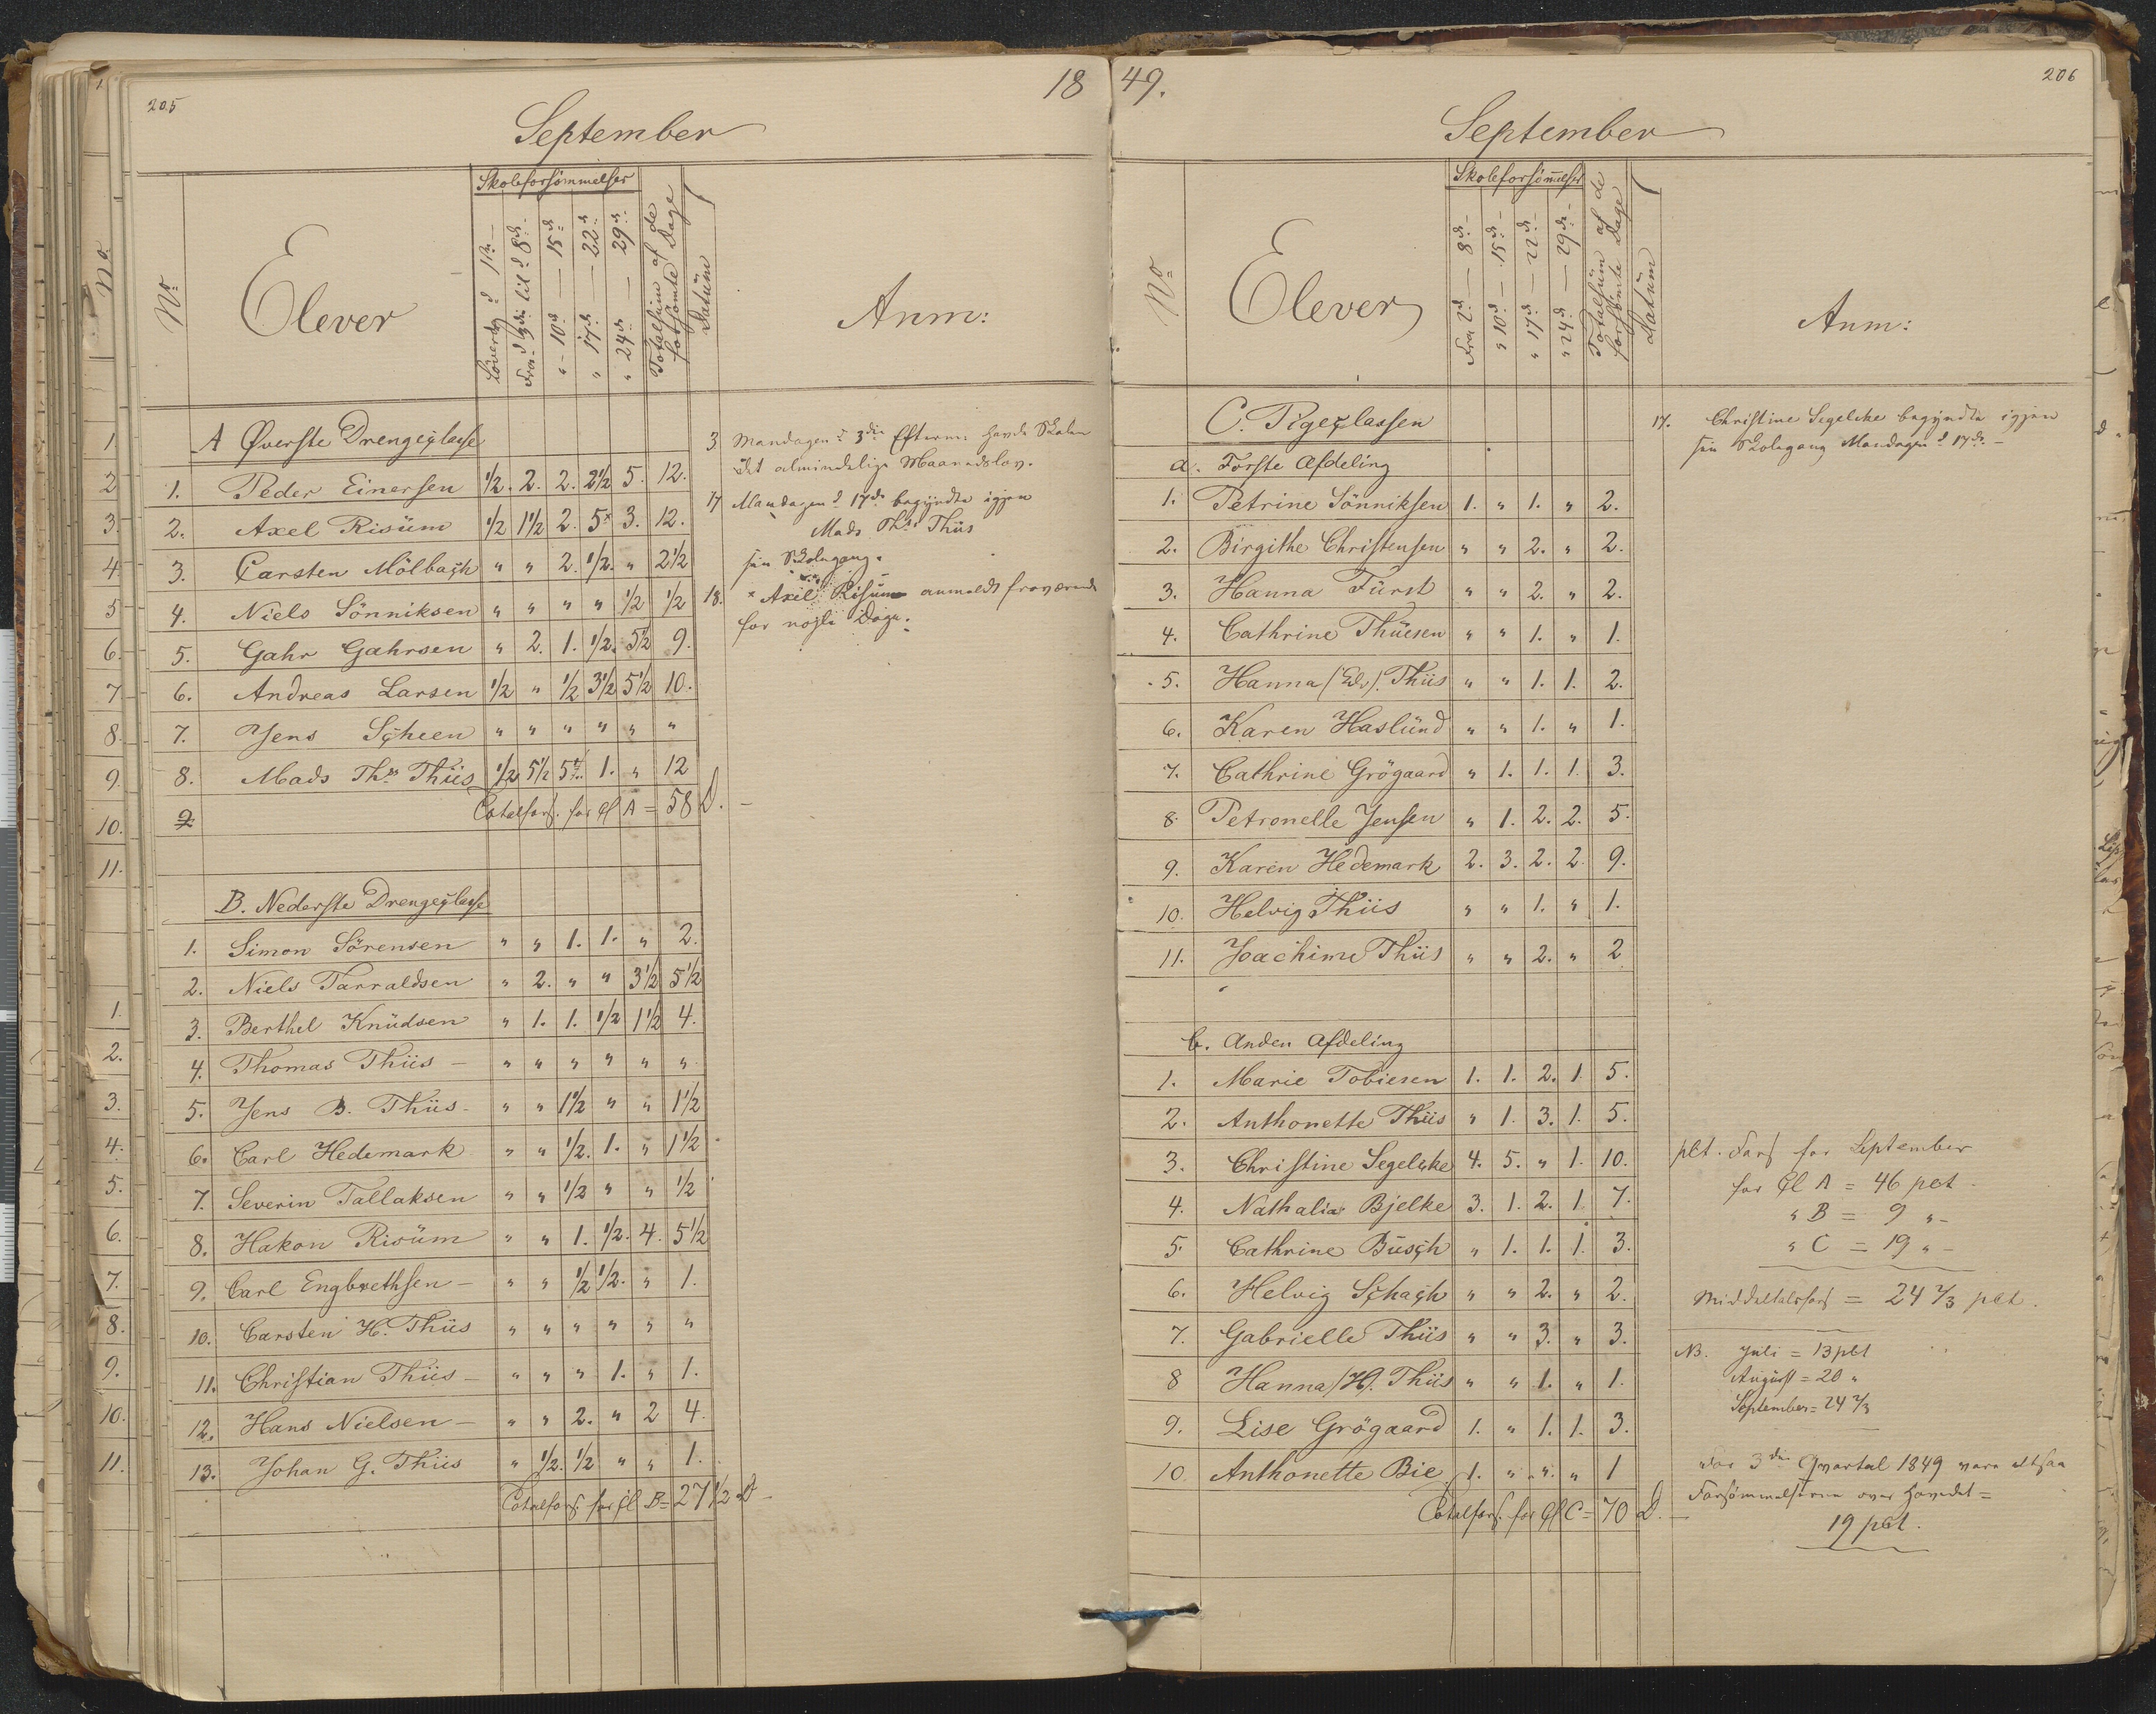 205
18
September
No
Elever
Skoleforsömmelser
Löverdag d 1ste
Fra d 3die til d 8de
" 10de — 15de
" 17de — 22de
" 24de — 29de
Totalsum af de forsömte Dage
Datüm
Anm:
A Øverste Drengeclasse
1. Peder Einersen 1/2. 2. 2. 2 1/2 5. 12.
2. Axel Risüm 1/2 1 1/2 2. 5x 3. 12.
3. Carsten Mölbach " " 2. 1/2. " 2 1/2
4. Niels Sönniksen " " " " 1/2 1/2
5. Gahr Gahrsen " 2. 1. 1/2. 5 1/2 9.
6. Andreas Larsen 1/2 " 1/2 3 1/2 5 1/2 10.
7. Jens Scheen " " " " " "
8. Mads Ths Thiis 1/2 5 1/2 5 1. " 12
9
Totalfors. for Cl A = 58 D. –
3 Mandagen d 3die Efterm: havde Skolen
det almindelige Maanedslov.
17 Mandagen d 17de begyndte igjen
Mads Ths Thiis
sin Skolegang.
18. x Axel Risüm anmeldt fraværende
for nogle Dage.
B. Nederste Drengeclasse
1. Simon Sörensen " " 1. 1. " 2.
2. Niels Tarraldsen " 2. " " 3 1/2 5 1/2
3. Berthel Knüdsen " 1. 1. 1/2 1 1/2 4.
4. Thomas Thiis – " " " " " "
5. Jens B. Thiis – " " 1 1/2 " " 1 1/2
6. Carl Hedemark " " 1/2. 1. " 1 1/2
7. Severin Tallaksen " " 1/2 " " 1/2
8. Hakon Risüm " " 1. 1/2. 4. 5 1/2
9. Carl Engbrethsen – " " 1/2 1/2. " 1.
10. Carsten H. Thiis " " " " " "
11. Christian Thiis – " " " 1. " 1.
12. Hans Nielsen – " " 2. " 2 4.
13. Johan G. Thiis " 1/2. 1/2 " " 1.
Totalfors. for Cl B = 27 1/2 D –
49.
206
September
No
Elever
Skoleforsömelser
Fra 2d — 8de
" 10de — 15de
" 17de — 22de
" 24de — 29de
Totalsüm af de forsömte Dage
Datüm
Anm:
C. Pigeclassen
a. Første Afdeling
1. Petrine Sönniksen 1. " 1. " 2.
2. Birgithe Christensen " " 2. " 2.
3. Hanna Fürst " " 2. " 2.
4. Cathrine Thüesen " " 1. " 1.
5. Hanna (Edv). Thiis " " 1. 1. 2.
6. Karen Haslünd " " 1. " 1.
7. Cathrine Grögaard " 1. 1. 1. 3.
8. Petronelle Jensen " 1. 2. 2. 5.
9. Karen Hedemark 2. 3. 2. 2. 9.
10. Helvig Thiis " " 1. " 1.
11. Joachime Thiis " " 2. " 2
17. Christine Segelcke begyndte igjen
sin Skolegang Mandagen d 17de –
b. Anden Afdeling
1. Marie Tobiesen 1. 1. 2. 1. 5.
2. Anthonette Thiis " 1. 3. 1. 5.
3. Christine Segelcke 4. 5. " 1. 10.
4. Nathalia Bjelke 3. 1. 2. 1. 7.
5. Cathrine Büsch " 1. 1. 1. 3.
6. Helvig Schach " " 2. " 2.
7. Gabrielle Thiis " " 3. " 3.
8 Hanna (H). Thiis " " 1. " 1.
9. Lise Grögaard 1. " 1. 1. 3.
10. Anthonette Bie 1. " " " 1
Totalfors. for Cl C = 70 D. –
pCt. Fors for September
for Cl A = 46 pCt.
" B = 9 " –
" C = 19 " –
Middeltalsfors = 24 2/3 pCt.
NB. Juli = 13 pCt
Augüst = 20 "
September = 24 2/3
For 3die Qvartal 1849 vare altsaa
Forsömmelserne over hovedet =
19 pCt.